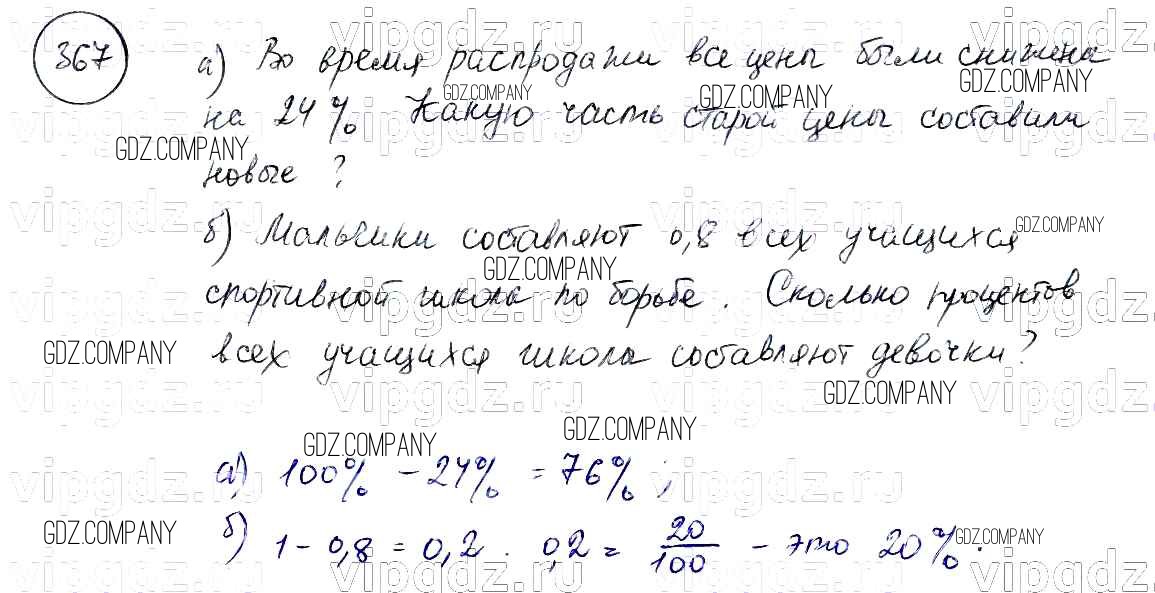 367
а) Во время распродажи все цены были снижены
на 24%. Какую часть старой цены составили
новые?
б) Мальчики составляют 0,8 всех учащихся
спортивной школы по борьбе. Сколько процентов
всех учащихся школы составляют девочки?
а) 100% - 24% = 76%;
б) 1 - 0,8 = 0,2. 0,2 = 20/100 - это 20%.
vipgdz.ru
GDZ.COMPANY